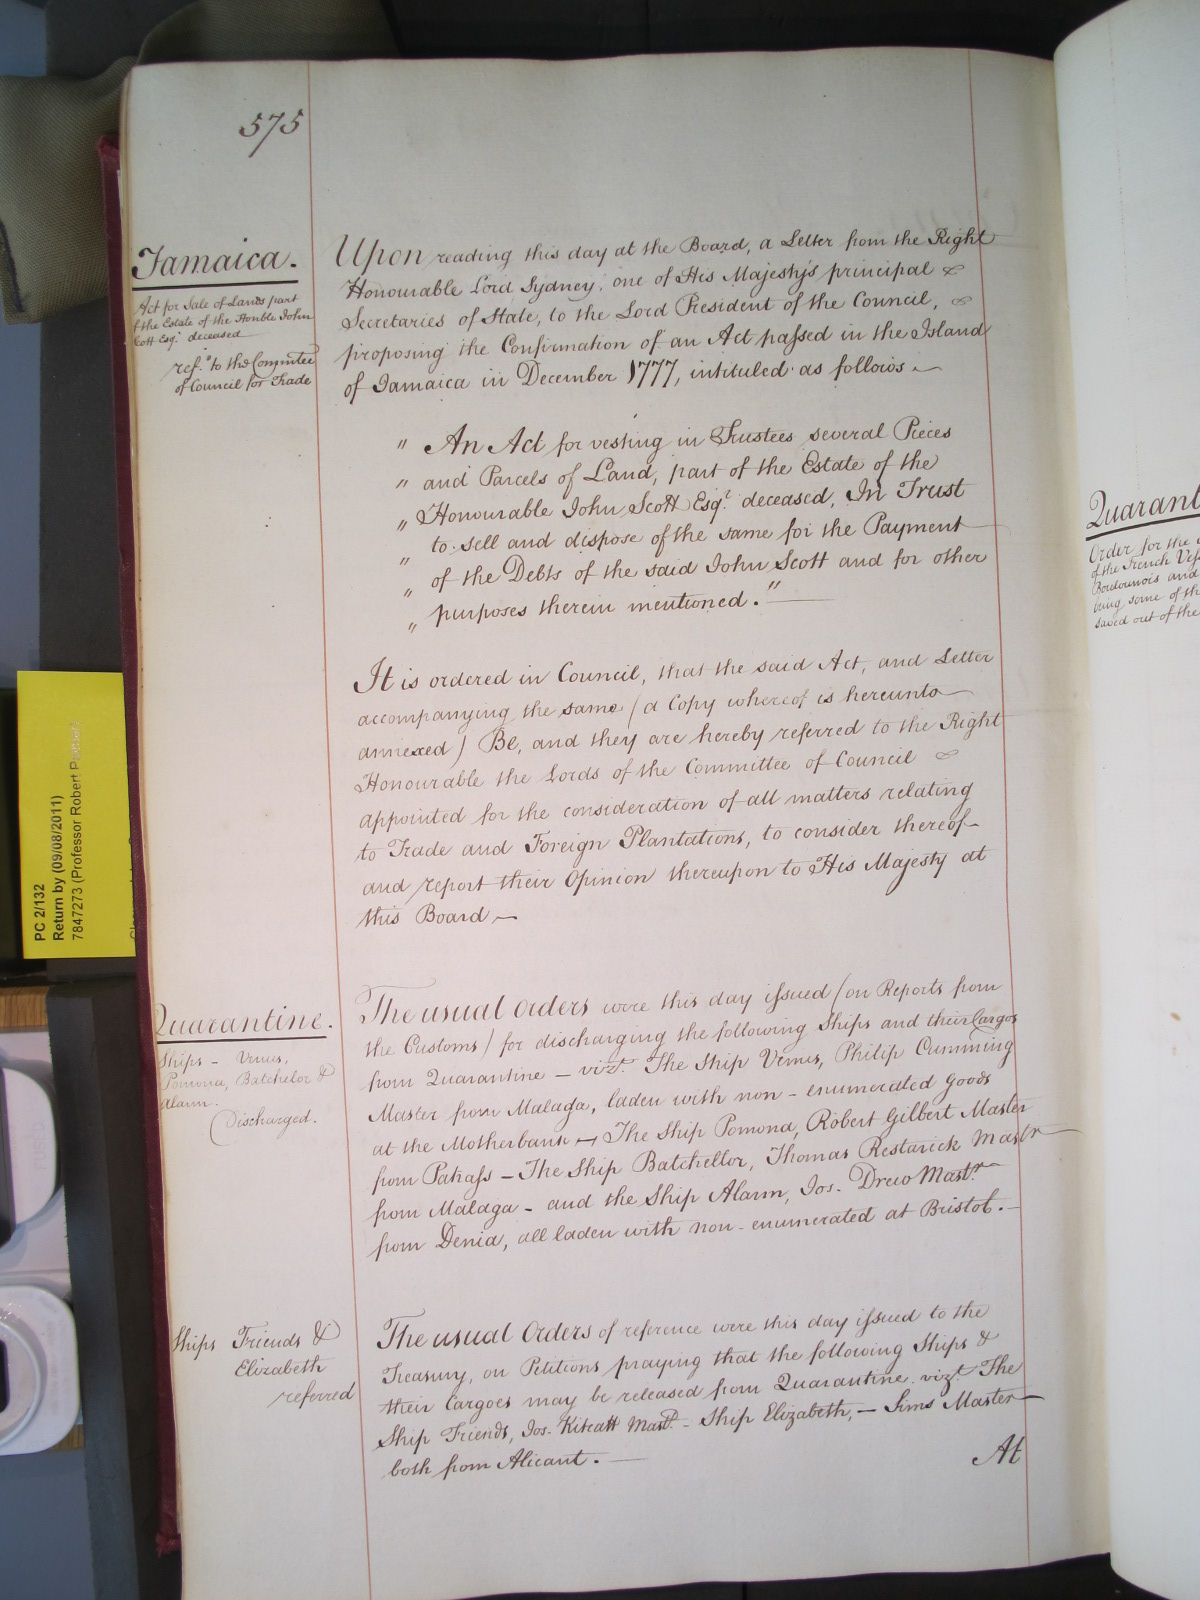 575
Jamaica.
Act for Sale of Lands part
of the Estate of the Honble John
Scott Esqr. deceased
refd. to the Committee
of Council for Trade
Upon reading this day at the Board, a Letter from the Right
Honourable Lord Sydney, one of His Majesty's principal
Secretaries of State, to the Lord President of the Council,
proposing the Confirmation of an Act passed in the Island
of Jamaica in December 1777, intituled as follows
" An Act for vesting in Trustees several Pieces
" and Parcels of Land, part of the Estate of the
" Honourable John Scott Esqr. deceased, In Trust
" to sell and dispose of the same for the Payment
" of the Debts of the said John Scott and for other
" purposes therein mentioned."
It is ordered in Council, that the said Act, and Letter
accompanying the same (a Copy whereof is hereunto
annexed) Be, and they are hereby referred to the Right
Honourable the Lords of the Committee of Council
appointed for the consideration of all matters relating
to Trade and Foreign Plantations, to consider thereof
and report their Opinion thereupon to His Majesty at
this Board
Quarantine.
Ships - Venus,
Pomona, Batchelor &
Alarm.
Discharged.
The usual Orders were this day issued (on Reports from
the Customs) for discharging the following Ships and their Cargos
from Quarantine - vizt. The Ship Venus, Philip Cumming
Master from Malaga, laden with non-enumerated goods
at the Motherbank - The Ship Pomona, Robert Gilbert Master
from Patrass - The Ship Batchellor, Thomas Restarick Mastr
from Malaga - and the Ship Alarm, Jos. Drew Mastr.
from Denia, all laden with non-enumerated at Bristol.
Ships Friends &
Elizabeth
referred
The usual Orders of reference were this day issued to the
Treasury, on Petitions praying that the following Ships &
their Cargoes may be released from Quarantine vizt. The
Ship Friends, Jos. Kitcatt Mastr. - Ship Elizabeth, - Sims Master
both from Alicant.
At
PC 2/132
Return by (09/08/2011)
7847273 (Professor Robert
Quarant
Order for the
of the French Ves
Bordounois and
being some of th
saved out of the